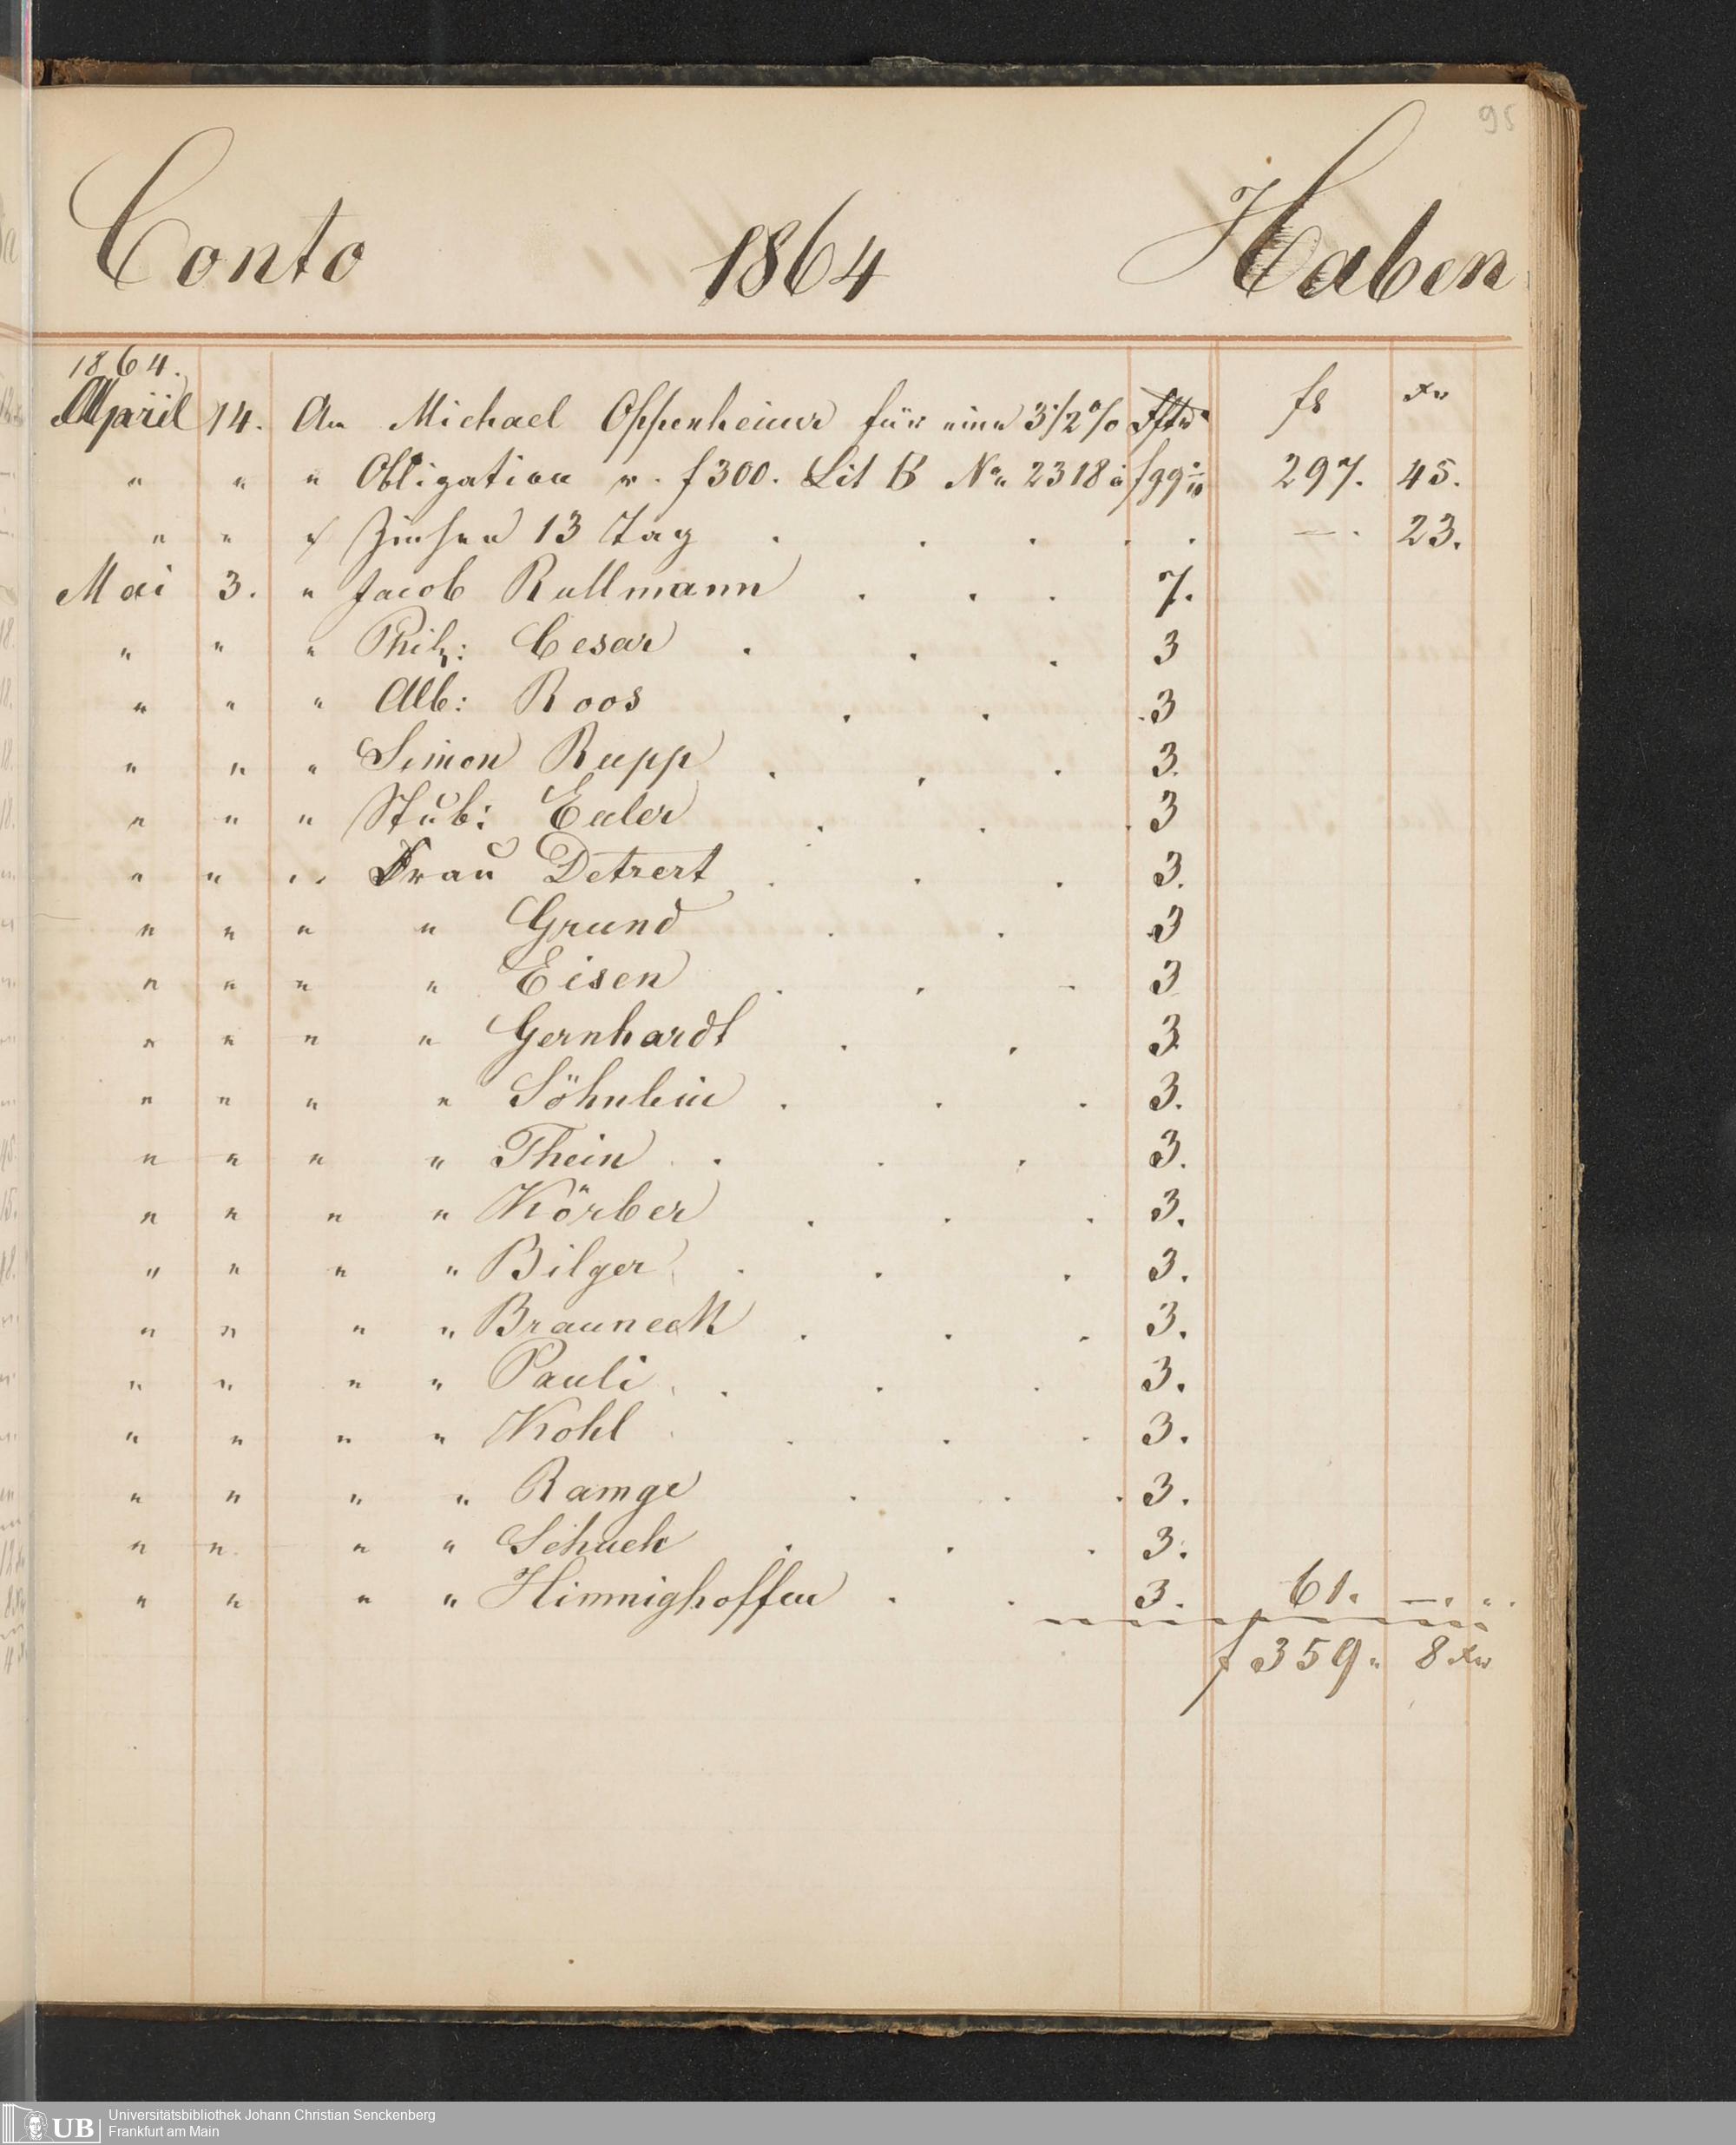 95
Conto 1864 Haben
1864.
April 14. An Michael Oppenheimer für eine 3 1/2 % fs xr
" " " Obligation v. f 300. Lit B No 2318 à f 99 297. 45.
" " " Zinsen 13 Tag . . . . . — . 23.
Mai 3. " Jacob Rullmann . . . 7.
" " " Phil: Cesar . . . 3
" " " Alb: Roos . . . 3
" " " Simon Rupp . . . 3.
" " " Stub: Ealer . . . 3
" " " Frau Detzert . . . 3.
" " " " Grund . . . 3
" " " " Eisen . . . 3
" " " " Gernhardt . . 3
" " " " Söhnlein . . . 3.
" " " " Thein . . . 3.
" " " " Körber . . . 3.
" " " " Bilger . . . 3.
" " " " Brauneck . . . 3.
" " " " Pauli . . . 3.
" " " " Kohl . . . 3.
" " " " Ramge . . . 3.
" " " " Schuck . . . 3.
" " " " Himmighoffen . . 3. 61. — . " .
f 359 " 8 xr
UB
Universitätsbibliothek Johann Christian Senckenberg
Frankfurt am Main